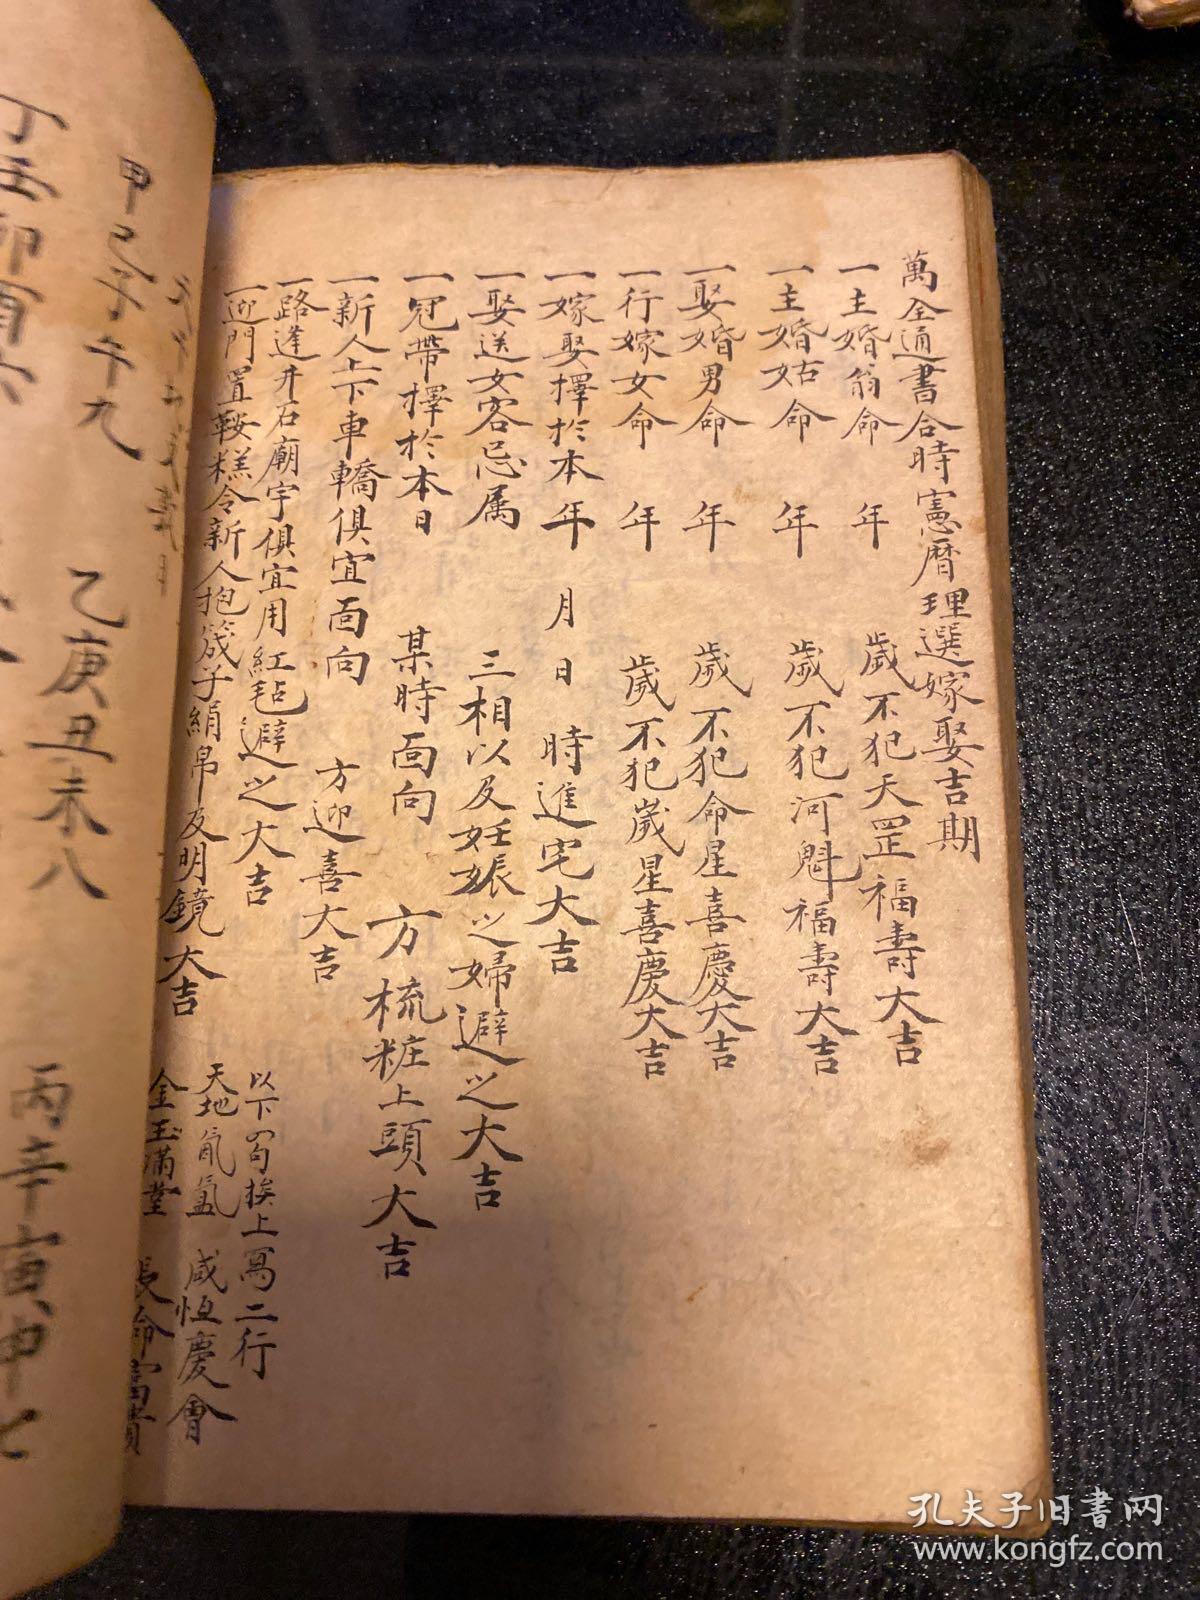 萬全通書合時憲曆理選嫁娶吉期
一主婚翁命 年 歲不犯天罡福壽大吉
一主婚姑命 年 歲不犯河魁福壽大吉
一娶婚男命 年 歲不犯命星喜慶大吉
一行嫁女命 年 歲不犯歲星喜慶大吉
一嫁娶擇於本年 月 日 時進宅大吉
一娶送女客忌属 三相以及妊娠之婦避之大吉
一冠帶擇於本日 某時面向 方梳粧上頭大吉
一新人上下車轎俱宜面向 方迎喜大吉
一路逢井石廟宇俱宜用紅毡避之大吉
一迎門置鞍糕令新人抱筬子絹帛及明鏡大吉
以下四句挨上寫二行
天地氤氳 咸恒慶會
金玉滿堂 長命富貴
甲己子午九
乙庚丑未八
丙辛寅申七
丁壬卯酉六
孔夫子旧书网
www.kongfz.com